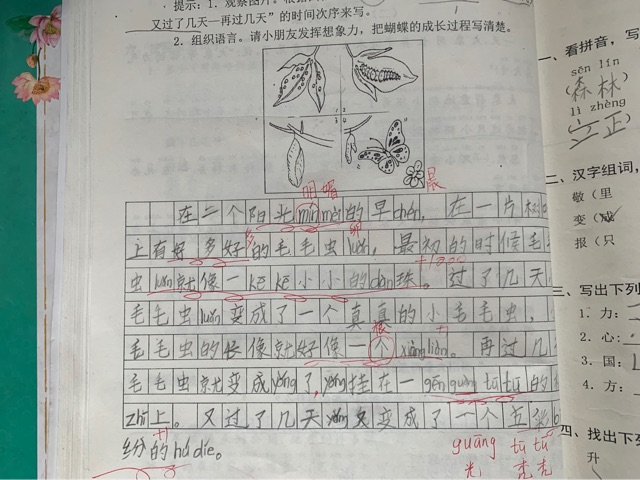 提示：1. 观察图片。根据
又过了几天—再过几天”的时间次序来写。
2. 组织语言。请小朋友发挥想象力，把蝴蝶的成长过程写清楚。
明媚
晨
在一个阳光míng mèi的早chén，在一片
上有好多好多的毛毛虫luǎn，最初的时候毛
卵
虫luǎn就像一kē kē小小的dàn珠。过了几天
毛毛虫luǎn变成了一个真真的小毛毛虫，
根
毛毛虫的长像就好像一个xiàng liàn。再过几
毛毛虫就变成yǒng了，yǒng挂在一gēn guāng tū tū的
zhī上。又过了几天yǒng又变成了一个五彩
纷的hú dié。
guāng tū tū
光秃秃
一、看拼音，写
sēn lín
（森林
lì zhèng
（立正
二、汉字组词，
敬（里
变（成
报（只
三、写出下列
1. 力：
2. 心：
3. 国：
4. 方：
四、找出下列
升